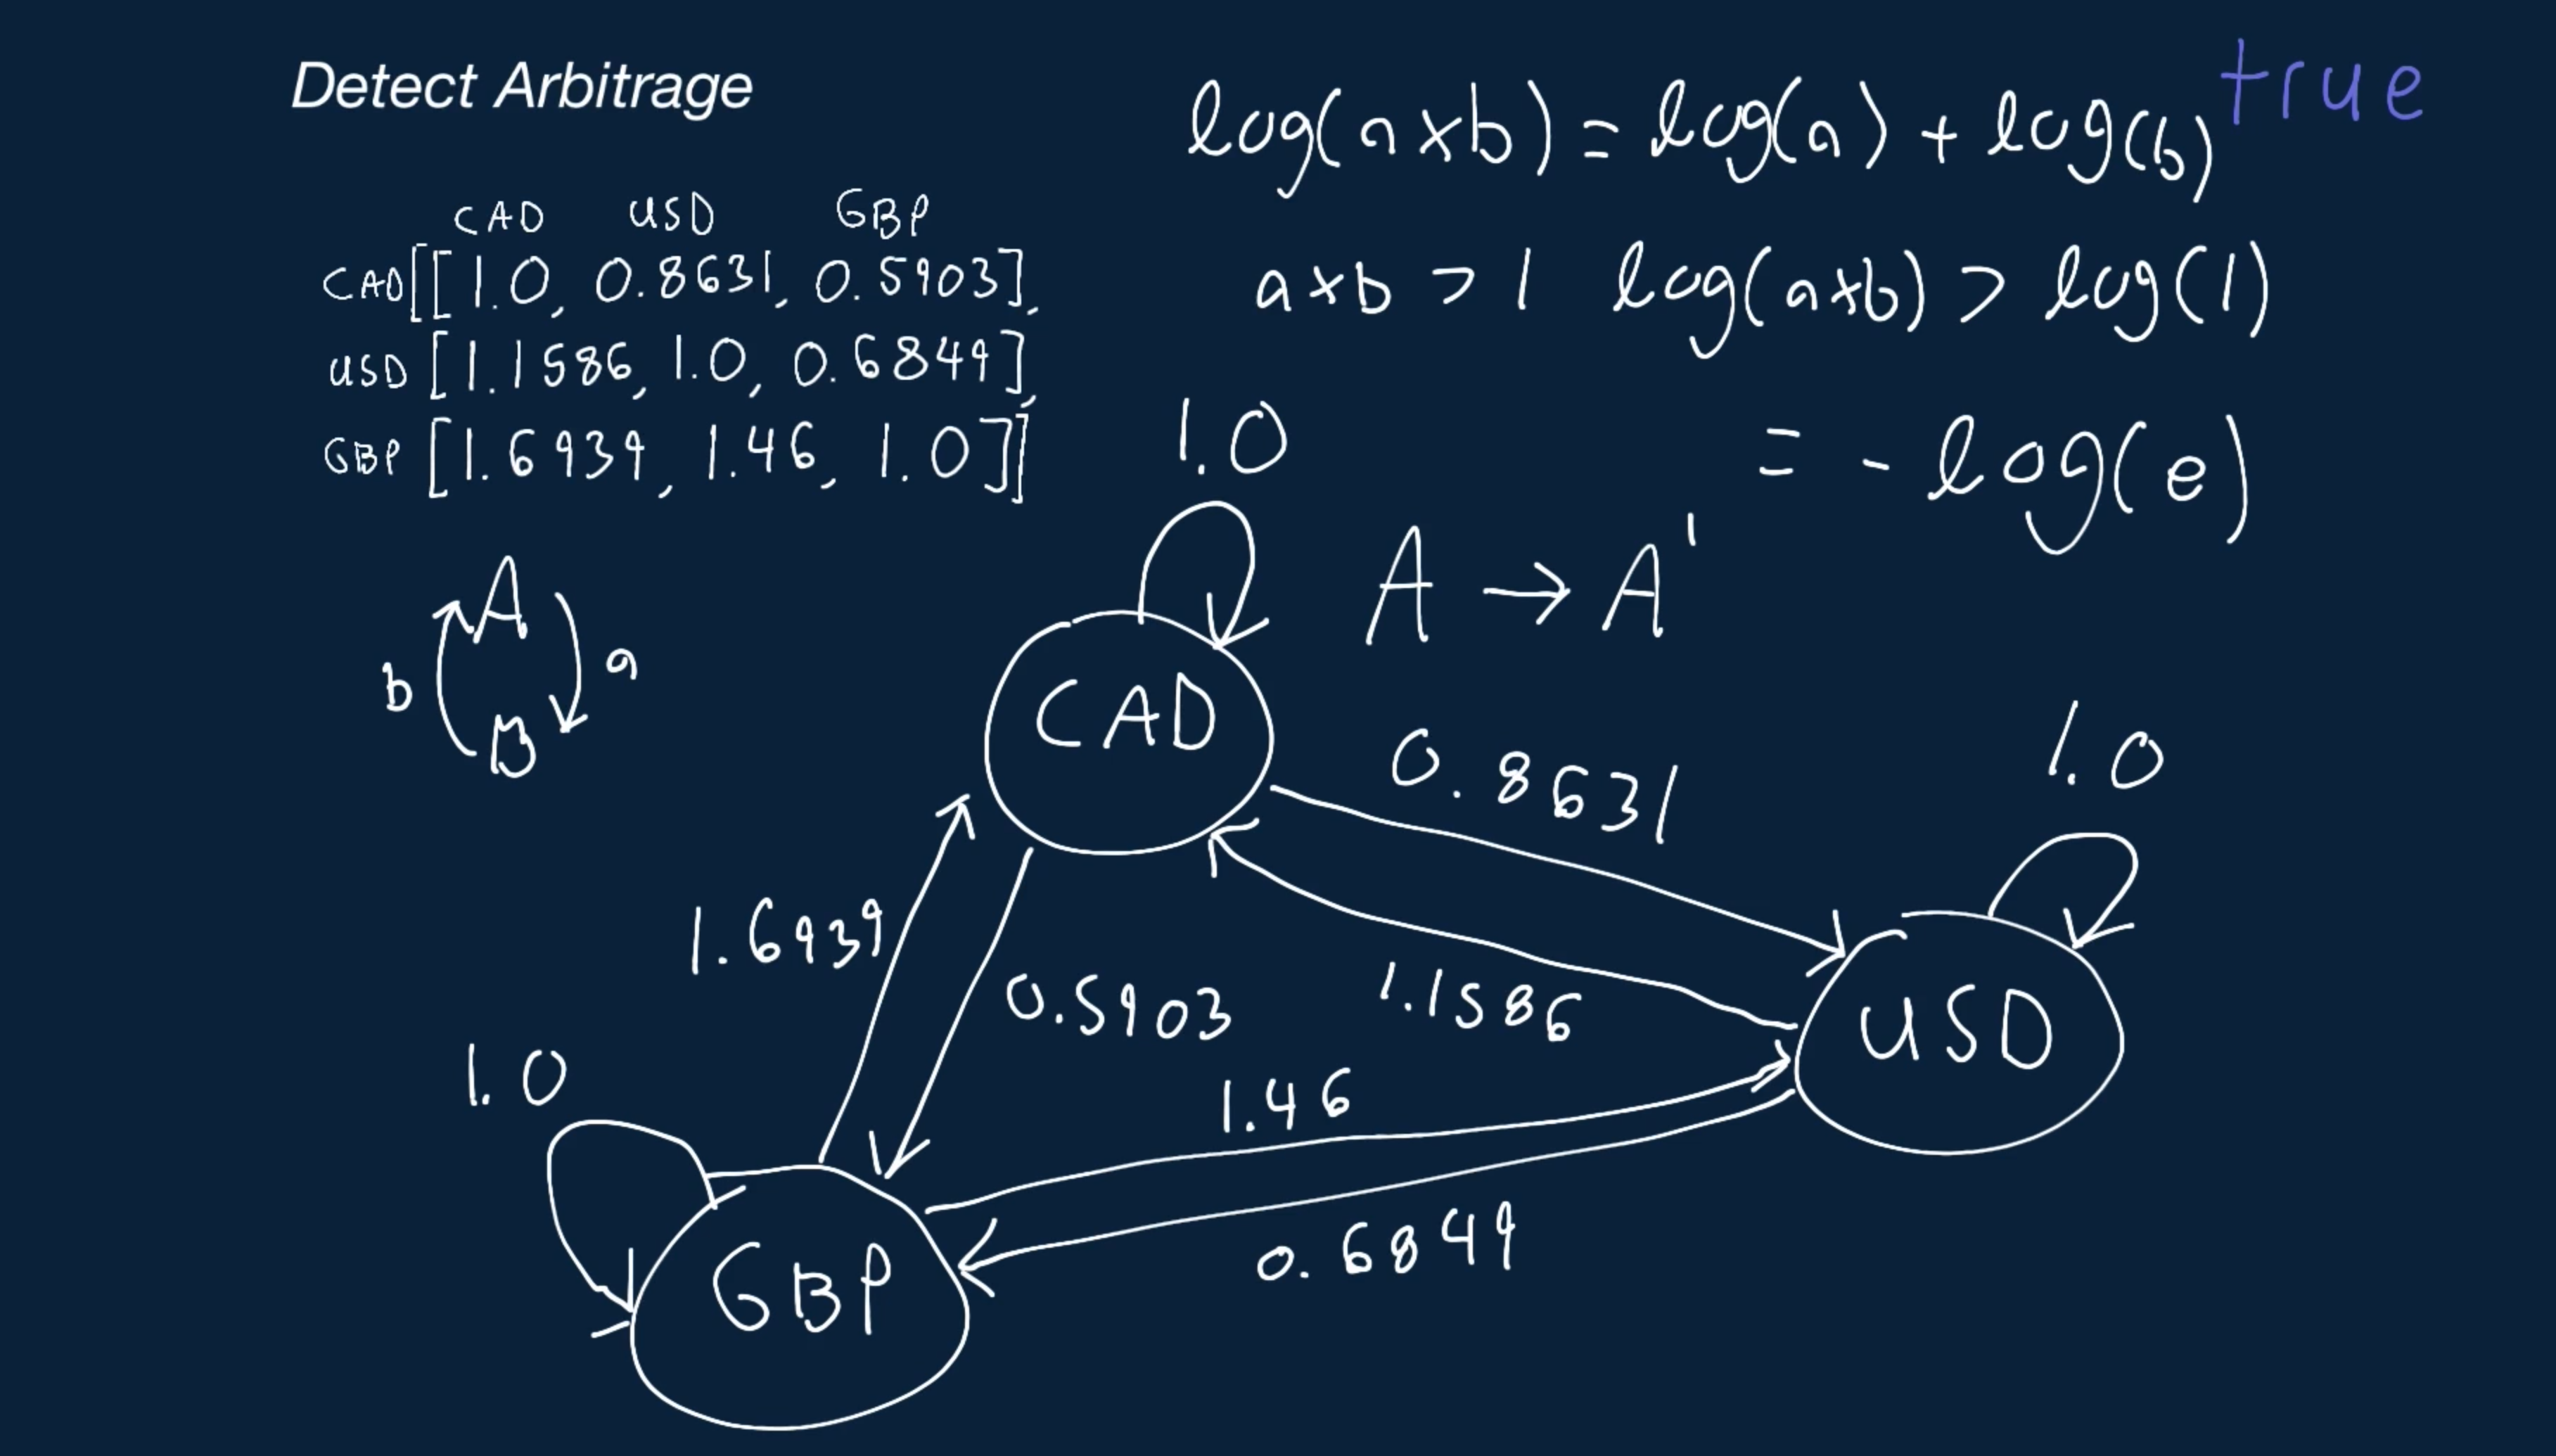 Detect Arbitrage
log(a×b) = log(a) + log(b)
true
CAD USD GBP
CAD[[1.0, 0.8631, 0.5903],
USD [1.1586, 1.0, 0.6849],
GBP [1.6939, 1.46, 1.0]]
a×b > 1 log(a×b) > log(1)
= -log(e)
A → A'
A
b
a
B
1.0
CAD
0.8631
1.0
1.6939
0.5903
1.1586
USD
1.0
1.46
0.6849
GBP